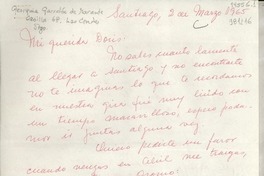 Georgina Garretón de Morandé
Casilla 68, Las Condes
Stgo.
Santiago, 2 de Marzo 1965
Mi querida Doris:
No sabes cuánto lamenté
al llegar a Santiago y no encontrarte
no te imaginas lo que te recordamos
en nuestra gira que muy lindo con
un tiempo maravilloso, espero poda-
mos ir juntas alguna vez
Quiero pedirte un favor
cuando vengas en Abril me traigas,